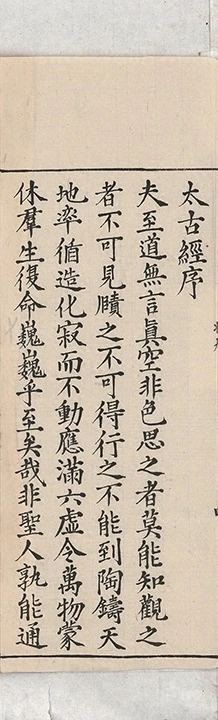 太古經序
夫至道無言真空非色思之者莫能知觀之
者不可見賾之不可得行之不能到陶鑄天
地率循造化寂而不動應滿六虛令萬物蒙
休羣生復命巍巍乎至矣哉非聖人孰能通